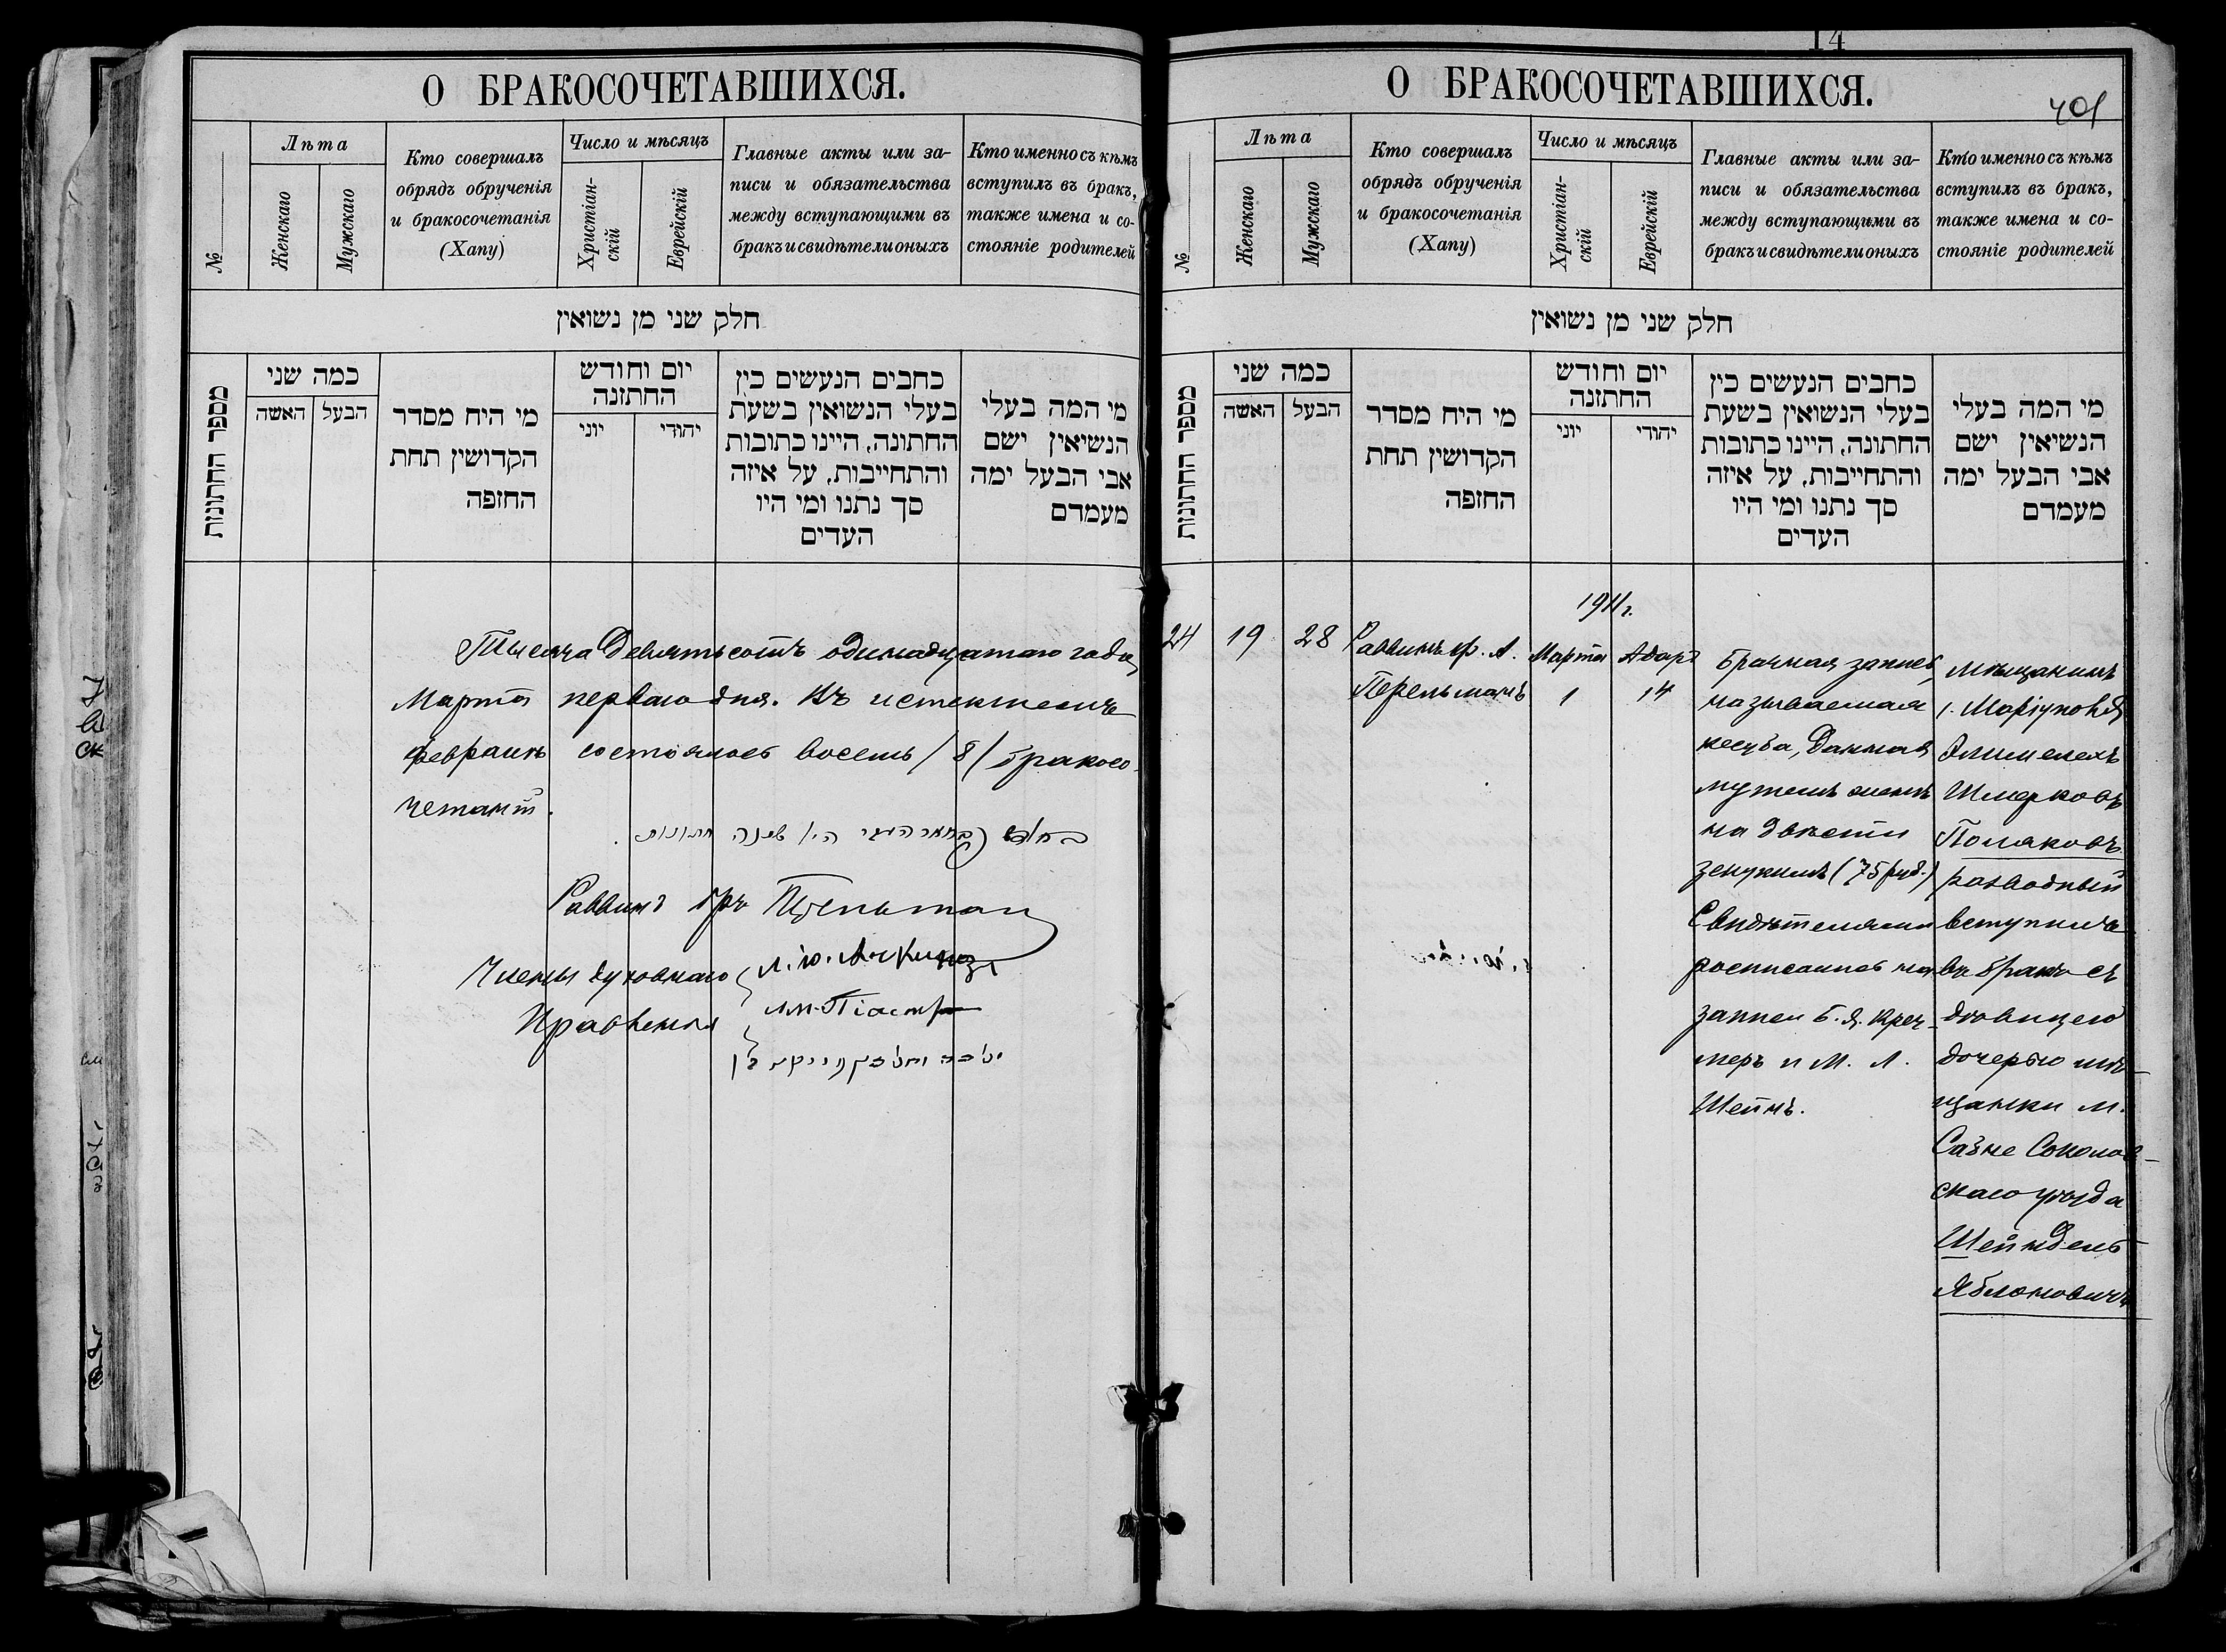 О БРАКОСОЧЕТАВШИХСЯ.
№
Лѣта
Женскаго
Мужскаго
Кто совершалъ
обрядъ обрученія
и бракосочетанія
(Хапу)
Число и мѣсяцъ
Христіан-
скій
Еврейскій
Главные акты или за-
писи и обязательства
между вступающими въ
бракъ и свидѣтели оныхъ
Кто именно съ кѣмъ
вступилъ въ бракъ,
также имена и со-
стояніе родителей
חלק שני מן נשואין
מספר החתונות
כמה שני
האשה
הבעל
מי היח מסדר
הקדושין תחת
החזפה
יום וחודש
החתזנה
יוני
יהודי
כחבים הנעשים כין
בעלי הנשואין בשעת
החתונה, היינו כתובות
והתחייבות, על איזה
סך נתנו ומי היו
העדים
מי המה בעלי
הנשיאין ישם
אבי הבעל ימה
מעמדם
Тысяча девятьсотъ одинадцатаго года,
Марта перваго дня. Въ истекшемъ
февралѣ состоялось восемь /8/ бракосо-
четаній.
Раввинъ Гр. Перельман
Члены духовнаго
Правленія
14
О БРАКОСОЧЕТАВШИХСЯ.
401
№
Лѣта
Женскаго
Мужскаго
Кто совершалъ
обрядъ обрученія
и бракосочетанія
(Хапу)
Число и мѣсяцъ
Христіан-
скій
Еврейскій
Главные акты или за-
писи и обязательства
между вступающими въ
бракъ и свидѣтели оныхъ
Кто именно съ кѣмъ
вступилъ въ бракъ,
также имена и со-
стояніе родителей
חלק שני מן נשואין
מספר החתונות
כמה שני
האשה
הבעל
מי היח מסדר
הקדושין תחת
החזפה
יום וחודש
החתזנה
יוני
יהודי
כחבים הנעשים כין
בעלי הנשואין בשעת
החתונה, היינו כתובות
והתחייבות, על איזה
סך נתנו ומי היו
העדים
מי המה בעלי
הנשיאין ישם
אבי הבעל ימה
מעמדם
1911 г.
24
19
28
Раввинъ Ф. А.
Перельманъ
Марта
1
Адаръ
14
Брачная запись,
называемая
кесуба, данная
мужемъ женѣ
на двѣсти
зекукимъ (75 руб.)
Свидѣтелями
росписались на
записи Б. Я. Крез-
меръ и М. Л.
Шейнъ.
Мѣщанинъ
г. Маріуполя
Элимелехъ
Шмерковъ
Поляковъ
разводный
вступилъ
въ бракъ съ
дѣвицею
дочерью мѣ-
щанки м.
Сазне Соколов-
скаго уѣзда
Шейндель
Яблоновичъ